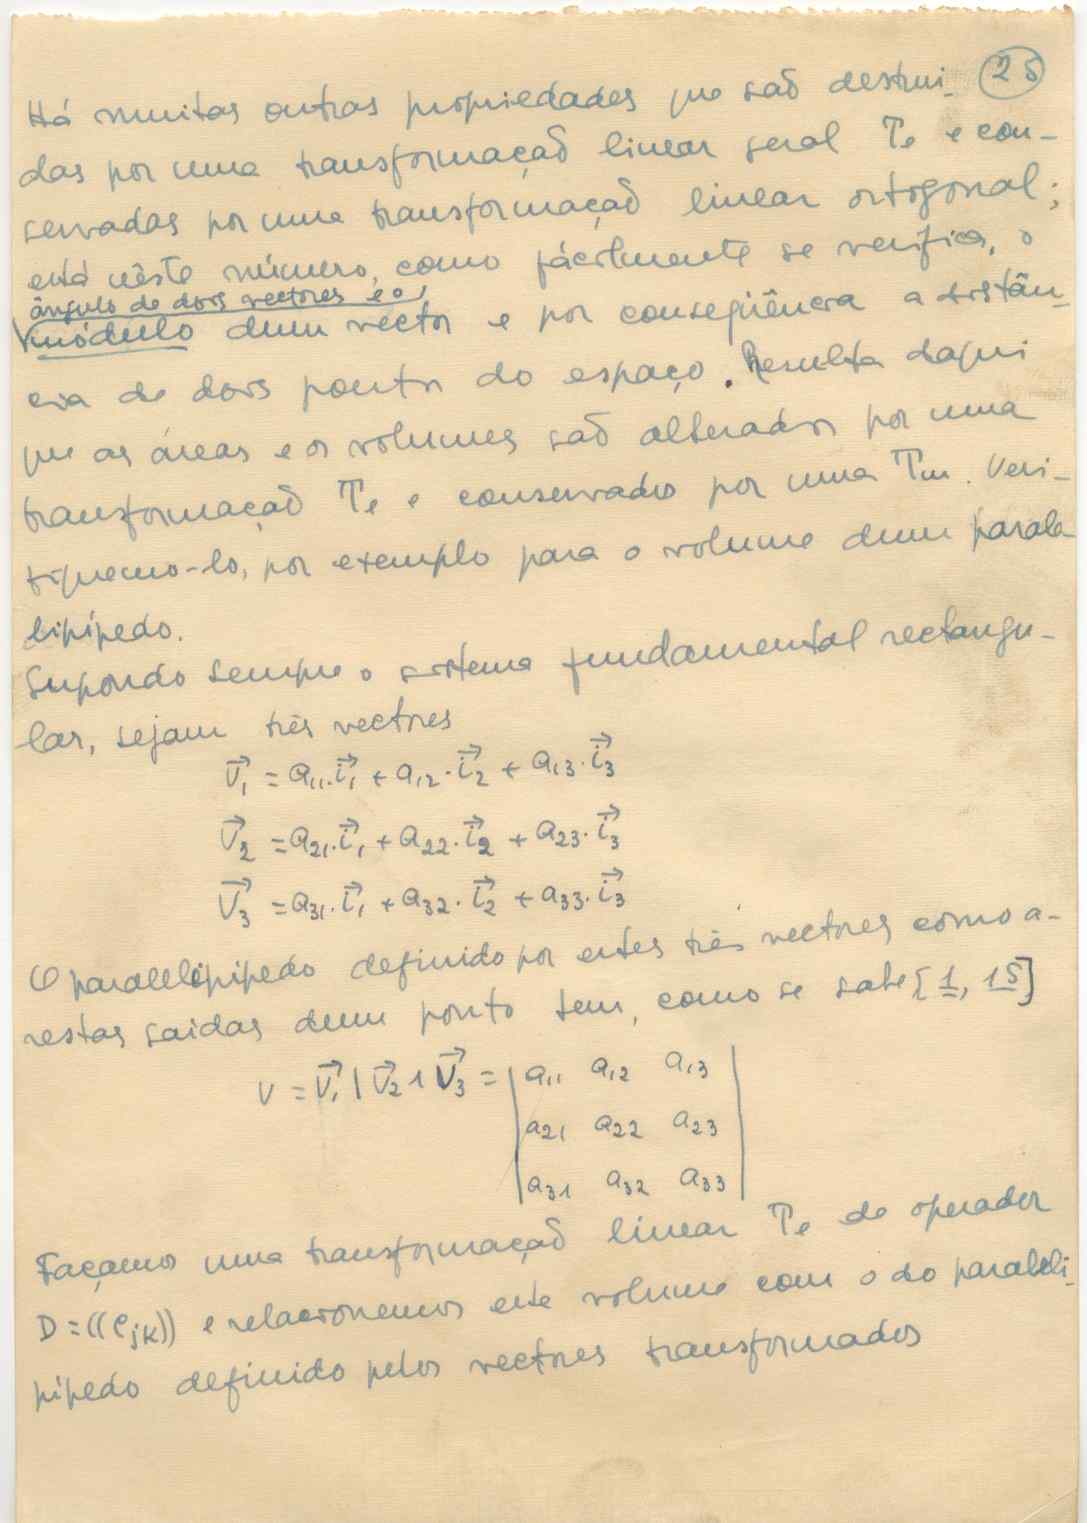 25
Há muitas outras propriedades que são destrui-
das por uma transformação linear geral Te e con-
servadas por uma transformação linear ortogonal;
está nêste número, como fácilmente se verifica, o
ângulo de dois vectores e o
módulo dum vector e por conseqüência a distân-
cia de dois pontos do espaço. Resulta daqui
que as áreas e os volumes são alterados por uma
transformação Te e conservados por uma Tm. Veri-
fiquemo-lo, por exemplo para o volume dum parale-
lipípedo.
Supondo sempre o sistema fundamental rectangu-
lar, sejam três vectores
V⃗₁ = a₁₁.i⃗₁ + a₁₂.i⃗₂ + a₁₃.i⃗₃
V⃗₂ = a₂₁.i⃗₁ + a₂₂.i⃗₂ + a₂₃.i⃗₃
V⃗₃ = a₃₁.i⃗₁ + a₃₂.i⃗₂ + a₃₃.i⃗₃
O paralelipipedo definido por estes três vectores como a-
restas saidas dum ponto tem, como se sabe [1, 15]
V = V⃗₁ | V⃗₂ ∧ V⃗₃ = | a₁₁ a₁₂ a₁₃ |
| a₂₁ a₂₂ a₂₃ |
| a₃₁ a₃₂ a₃₃ |
Façamos uma transformação linear Te de operador
D = ((e_jk)) e relacionemos este volume com o do paraleli-
pípedo definido pelos vectores transformados